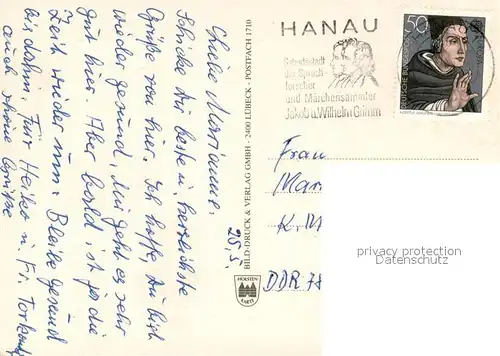 Liebe Marianne.
Schicke dir beste u. herzlichste
Grüße von hier. Ich hoffe, du bist
wieder gesund, mir geht es sehr
gut hier. Aber bald ist ja die
Zeit wieder um. Bleibe gesund
bis dahin. Für Heiko u. Fr.
auch schöne Grüße
25.5.
BILD-DRUCK & VERLAG GMBH · 2400 LÜBECK · POSTFACH 1710
HOLSTEN
KARTE
HANAU
Geburtsstadt
der Sprach-
forscher
und Märchensammler
Jakob u. Wilhelm Grimm
50
Frau
Mar
DDR
privacy protection
Datenschutz